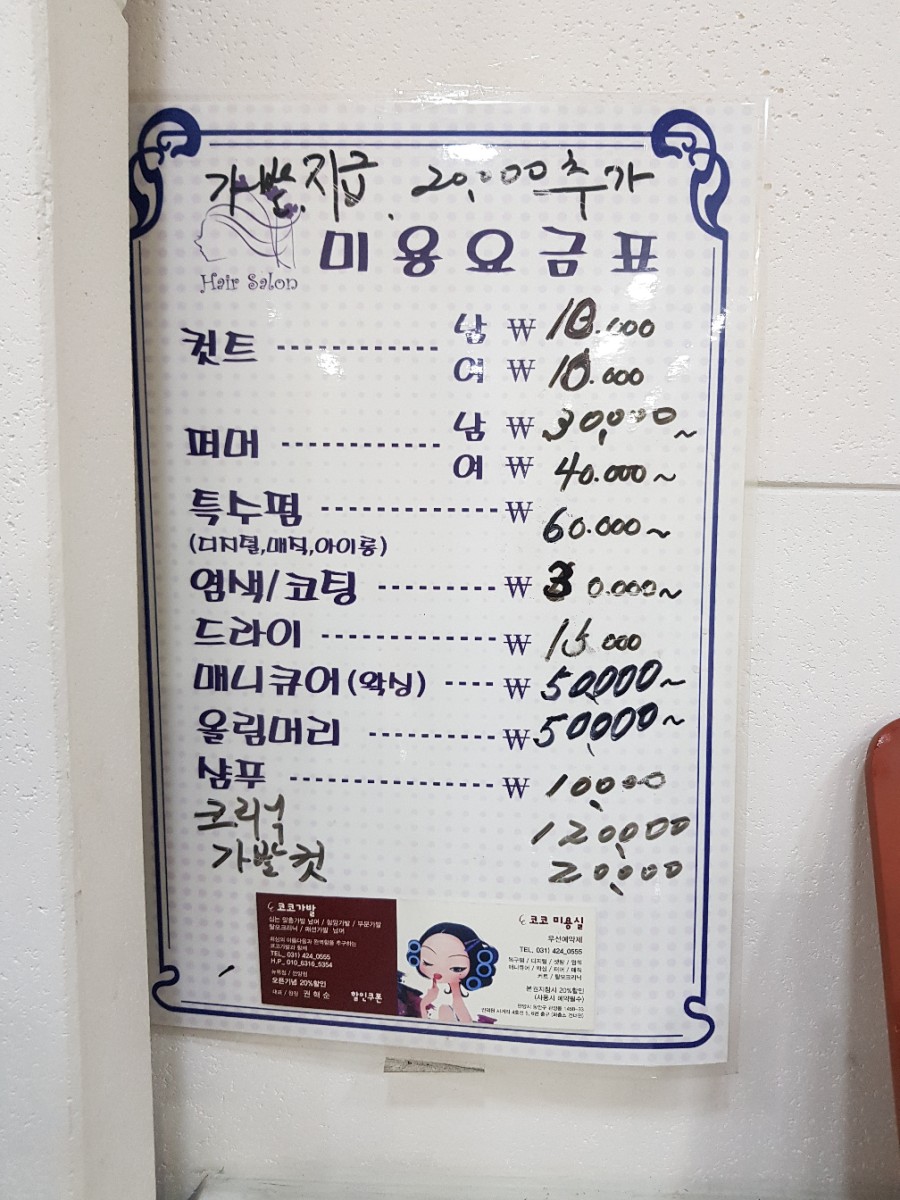 가발.지급. 20,000추가
Hair Salon
미용요금표
컷트 남 ₩ 10.000
여 ₩ 10.000
퍼머 남 ₩ 30,000~
여 ₩ 40.000~
특수펌 ₩ 60.000~
(디지털,매직,아이롱)
염색/코팅 ₩ 30.000~
드라이 ₩ 15.000
매니큐어(왁싱) ₩ 50,000~
올림머리 ₩ 50,000~
샴푸 ₩ 10,000
크리닉 120,000
가발컷 20,000
코코가발
심는 맞춤가발 남여 / 항암가발 / 부분가발
탈모크리닉 / 패션가발 남여
TEL. 031) 424_0555
H.P. 010_6316_5354
오픈기념 20%할인
할인쿠폰
코코 미용실
우선예약제
TEL. 031) 424_0555
본권지참시 20%할인
(사용시 예약필수)